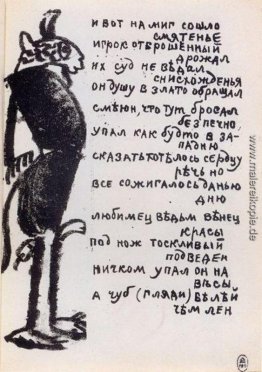 и вот на миг сошло
смятенье
игрок отброшенный
дрожал
их суд не ведал
снисхожденья
он душу в злато обращал
смеюн, что тут бросал
беспечно,
упал как будто в за-
падню
сказать хотелось сердцу
речь но
все сожигалось данью
дню
любимец ведьм венец
красы
под нож тоскливый
подведен
ничком упал он на
весы
а чуб (гляди) белей
чем лен
www.malereikopie.de